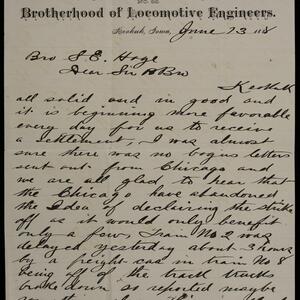 Brotherhood of Locomotive Engineers.
Keokuk, Iowa, June 23 188
Bro S. E. Hoge
Dear Sir & Bro
Keokuk
all solid and in good and
it is beginning more favorable
every day for us to receive
a settlement, I was almost
sure there was no bogus letters
sent out from Chicago and
we are all glad to hear that
the Chicago have abandoned
the Idea of declairing the strike
off as it would only benefit
only a few, Train No 2 was
delayed yesterday about 3 hours
by a freight car in train No 8
being off of the track trucks
brake down as reported maybe